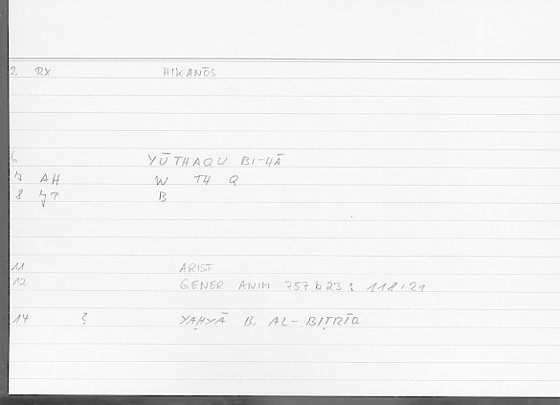 2 RX HIKANŌS
6 YŪTHAQU BI-HĀ
7 AH W TH Q
8 B
11 ARIST
12 GENER ANIM 757 b 23 : 118,21
14 ? YAḤYĀ B. AL-BIṬRĪQ